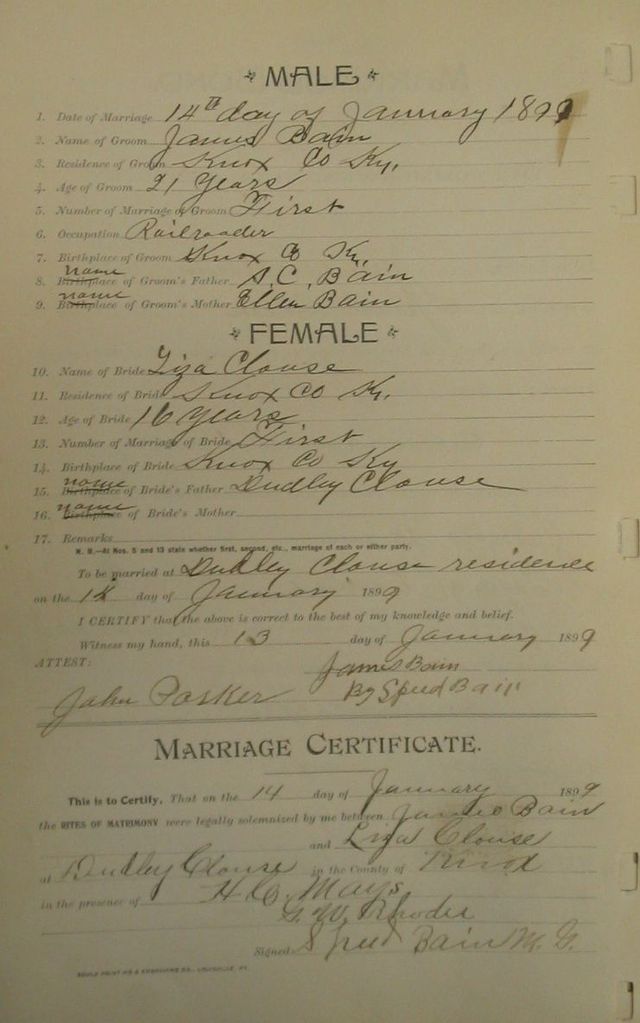 MALE
1. Date of Marriage 14th day of January 1899
2. Name of Groom James Bain
3. Residence of Groom Knox Co Ky.
4. Age of Groom 21 Years
5. Number of Marriage of Groom First
6. Occupation Railroader
7. Birthplace of Groom Knox Co Ky.
name
8. Birthplace of Groom's Father S. C. Bain
name
9. Birthplace of Groom's Mother Ellen Bain
FEMALE
10. Name of Bride Liza Clouse
11. Residence of Bride Knox Co Ky.
12. Age of Bride 16 Years
13. Number of Marriage of Bride First
14. Birthplace of Bride Knox Co Ky
name
15. Birthplace of Bride's Father Dudley Clouse
name
16. Birthplace of Bride's Mother
17. Remarks
N. B.—At Nos. 5 and 13 state whether first, second, etc., marriage of each or either party.
To be married at Dudley Clouse residence
on the 14 day of January 1899
I CERTIFY that the above is correct to the best of my knowledge and belief.
Witness my hand, this 13 day of January 1899
ATTEST: James Bain
John Parker By Speed Bain
MARRIAGE CERTIFICATE.
This is to Certify, That on the 14 day of January 1899
the RITES OF MATRIMONY were legally solemnized by me between James Bain
and Liza Clouse
at Dudley Clouse in the County of Knox
in the presence of H. C. Mays
G. W. Rhodes
Signed Speed Bain M. G.